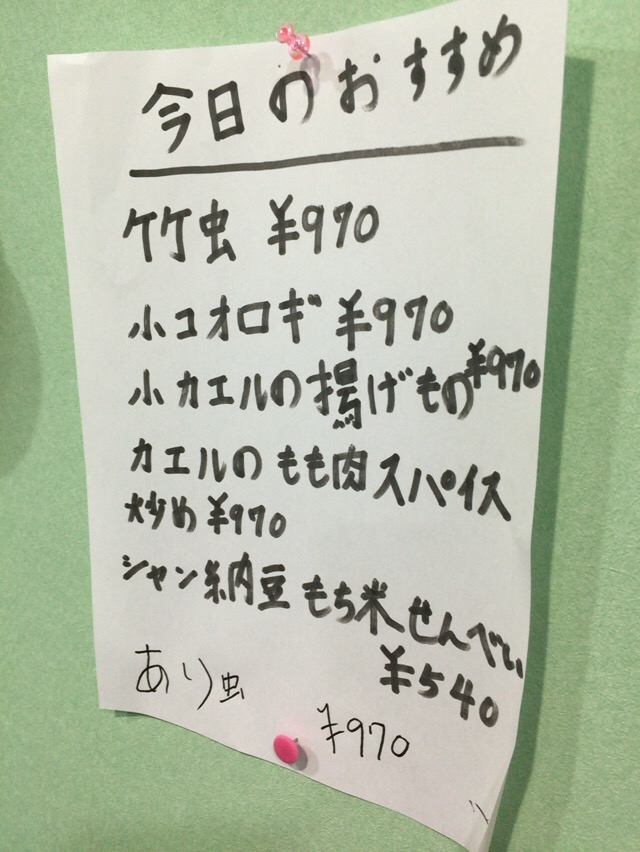 今日のおすすめ
竹虫 ¥970
小コオロギ ¥970
小カエルの揚げもの ¥970
カエルのもも肉スパイス
炒め ¥970
シャン納豆もち米せんべい
¥540
あり虫
¥970